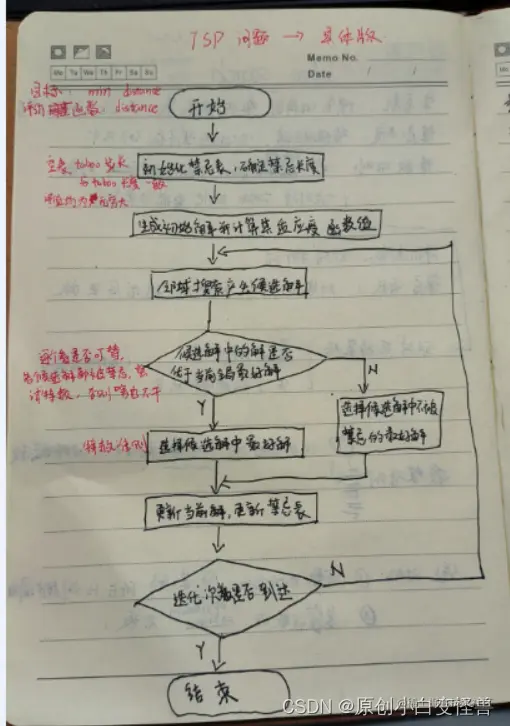 TSP 问题 → 具体版
Memo No.
Mo Tu We Th Fr Sa Su
Date / /
目标: min distance
评价函数: distance
开始
初始化禁忌表,确定禁忌长度
生成初始解并计算其适应度函数值
邻域搜索产生候选解
候选解中的解是否
优于当前全局最好解
N
Y
选择候选解中不被
禁忌的最好解
特赦准则
选择候选解中最好解
更新当前解,更新禁忌表
迭代次数是否到达
N
Y
结束
CSDN @原创小白变怪兽